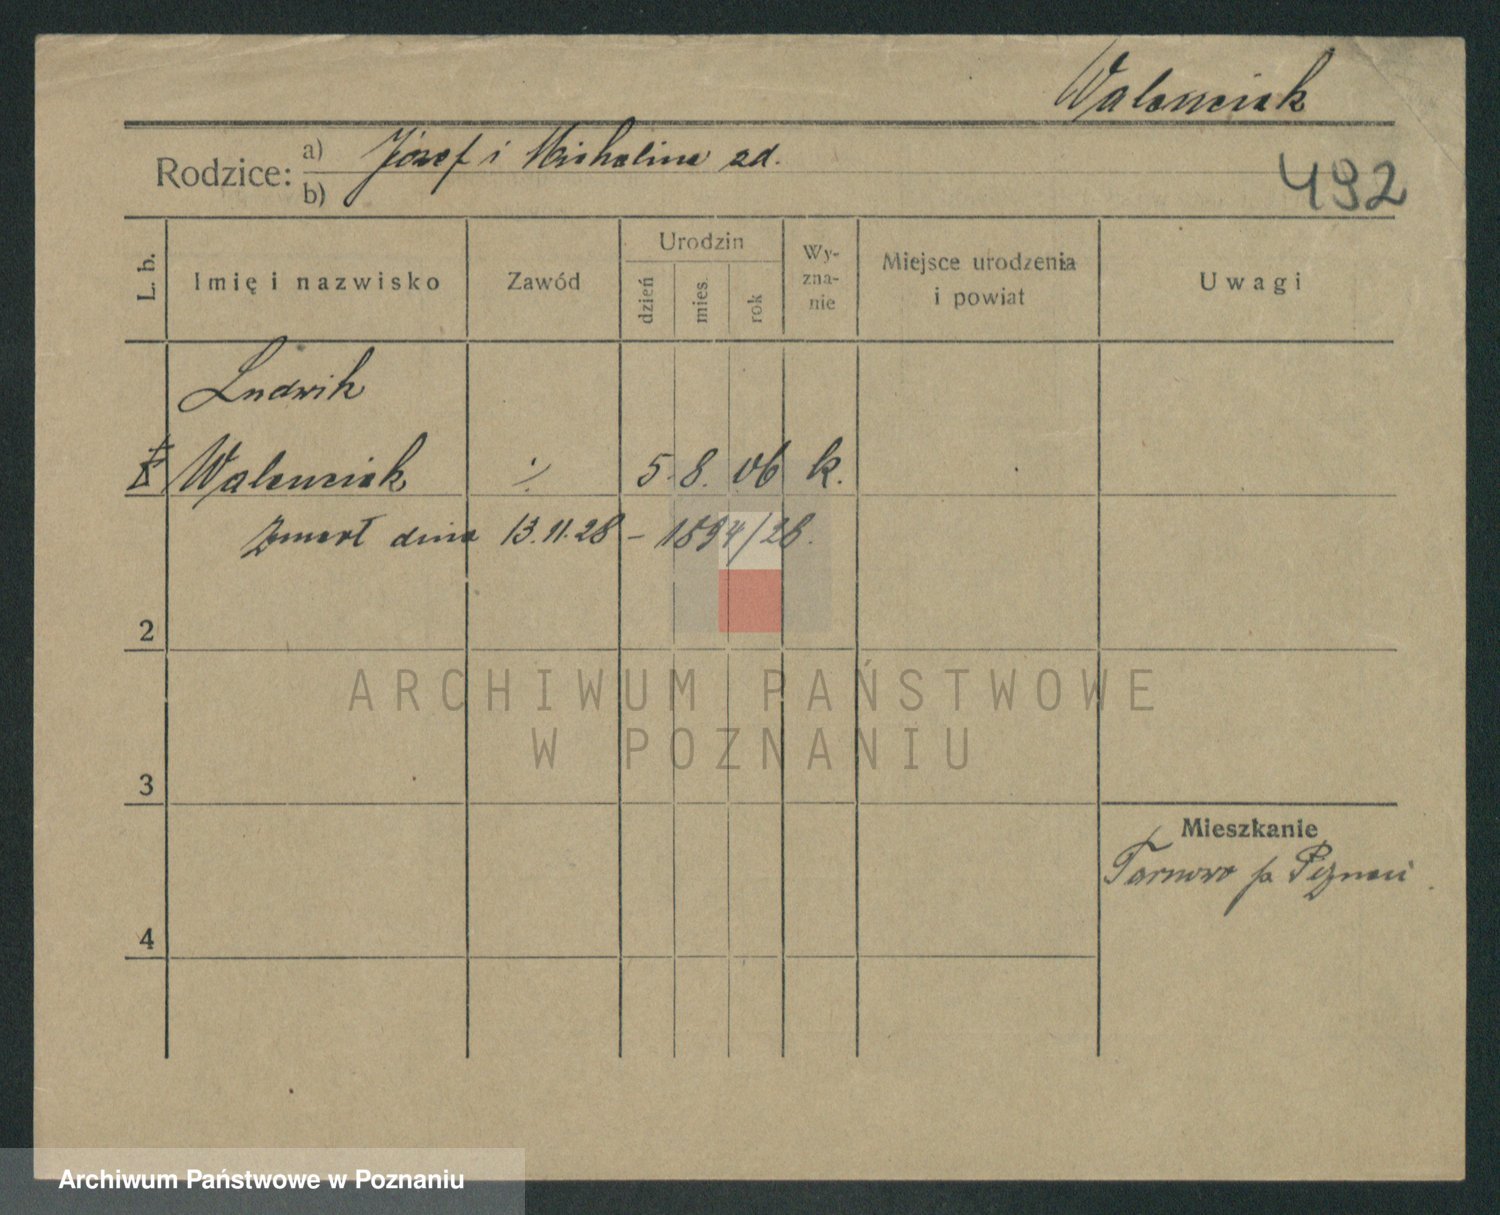 Walenciak
Rodzice: a) Józef i Michalina zd.
b)
492
L. b.
Imię i nazwisko
Zawód
Urodzin
dzień
mies.
rok
Wy-
zna-
nie
Miejsce urodzenia
i powiat
Uwagi
Ludwik
Walenciak ./. 5. 8. 06 k.
Zmarł dnia 13.11.28 – 1894/28.
2
3
4
Mieszkanie
Tarnowo p. Poznań
ARCHIWUM PAŃSTWOWE
W POZNANIU
Archiwum Państwowe w Poznaniu